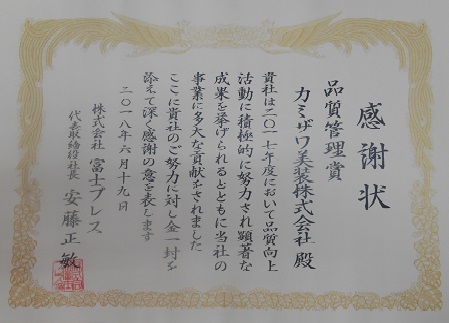 感謝状
品質管理賞
カミザワ美装株式会社 殿
貴社は二〇一七年度において品質向上
活動に積極的に努力され顕著な
成果を挙げられるとともに当社の
事業に多大な貢献をされました
ここに貴社のご努力に対し金一封を
添えて深く感謝の意を表します
二〇一八年六月十九日
株式会社 富士プレス
代表取締役社長 安藤正敏